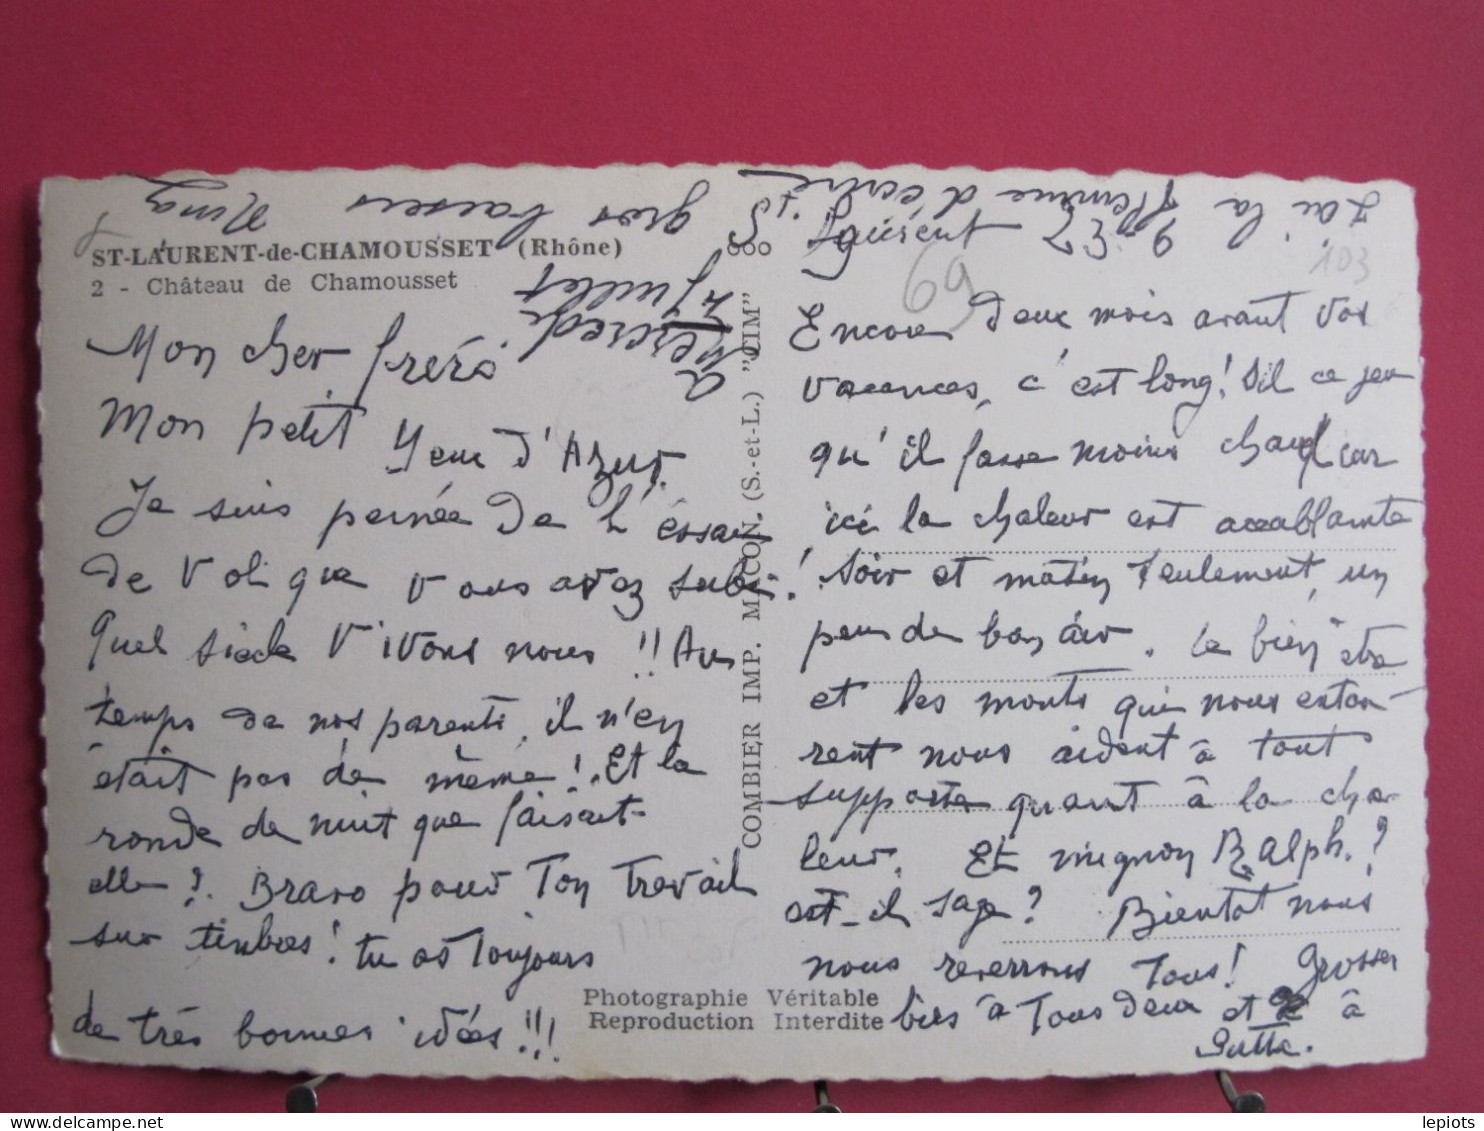 ST-LAURENT-de-CHAMOUSSET (Rhône)
2 - Château de Chamousset
gros baisers Nina
J'ai la flemme d'écrire
St Laurent
Mercredi
4 Juillet
69
103
Mon cher frère
Mon petit Yeux d'Azur.
Je suis peinée de l'éssai
de Vol que vous avez subi!
Quel siècle Vivons nous!! Au
temps de nos parents, il n'en
était pas de même! Et la
ronde de nuit que faisait-
elle? Bravo pour Ton Travail
sur timbres! tu as Toujours
de très bonnes idées!!!
COMBIER IMP. MACON. (S.-et-L.) "CIM"
Encore deux mois avant vos
vacances, c'est long!
qu'il fasse moins chaud car
ici la chaleur est accablante
Soir et matin seulement, un
peu de bon air. Le bien être
et les monts qui nous entou-
rent nous aident à tout
supporter quant à la cha-
leur. Et mignon Ralph.?
est-il sage? Bientot nous
nous reverrons Tous! Grosses
bises à Tous deux et à
Photographie Véritable
Reproduction Interdite
lepiots
www.delcampe.net